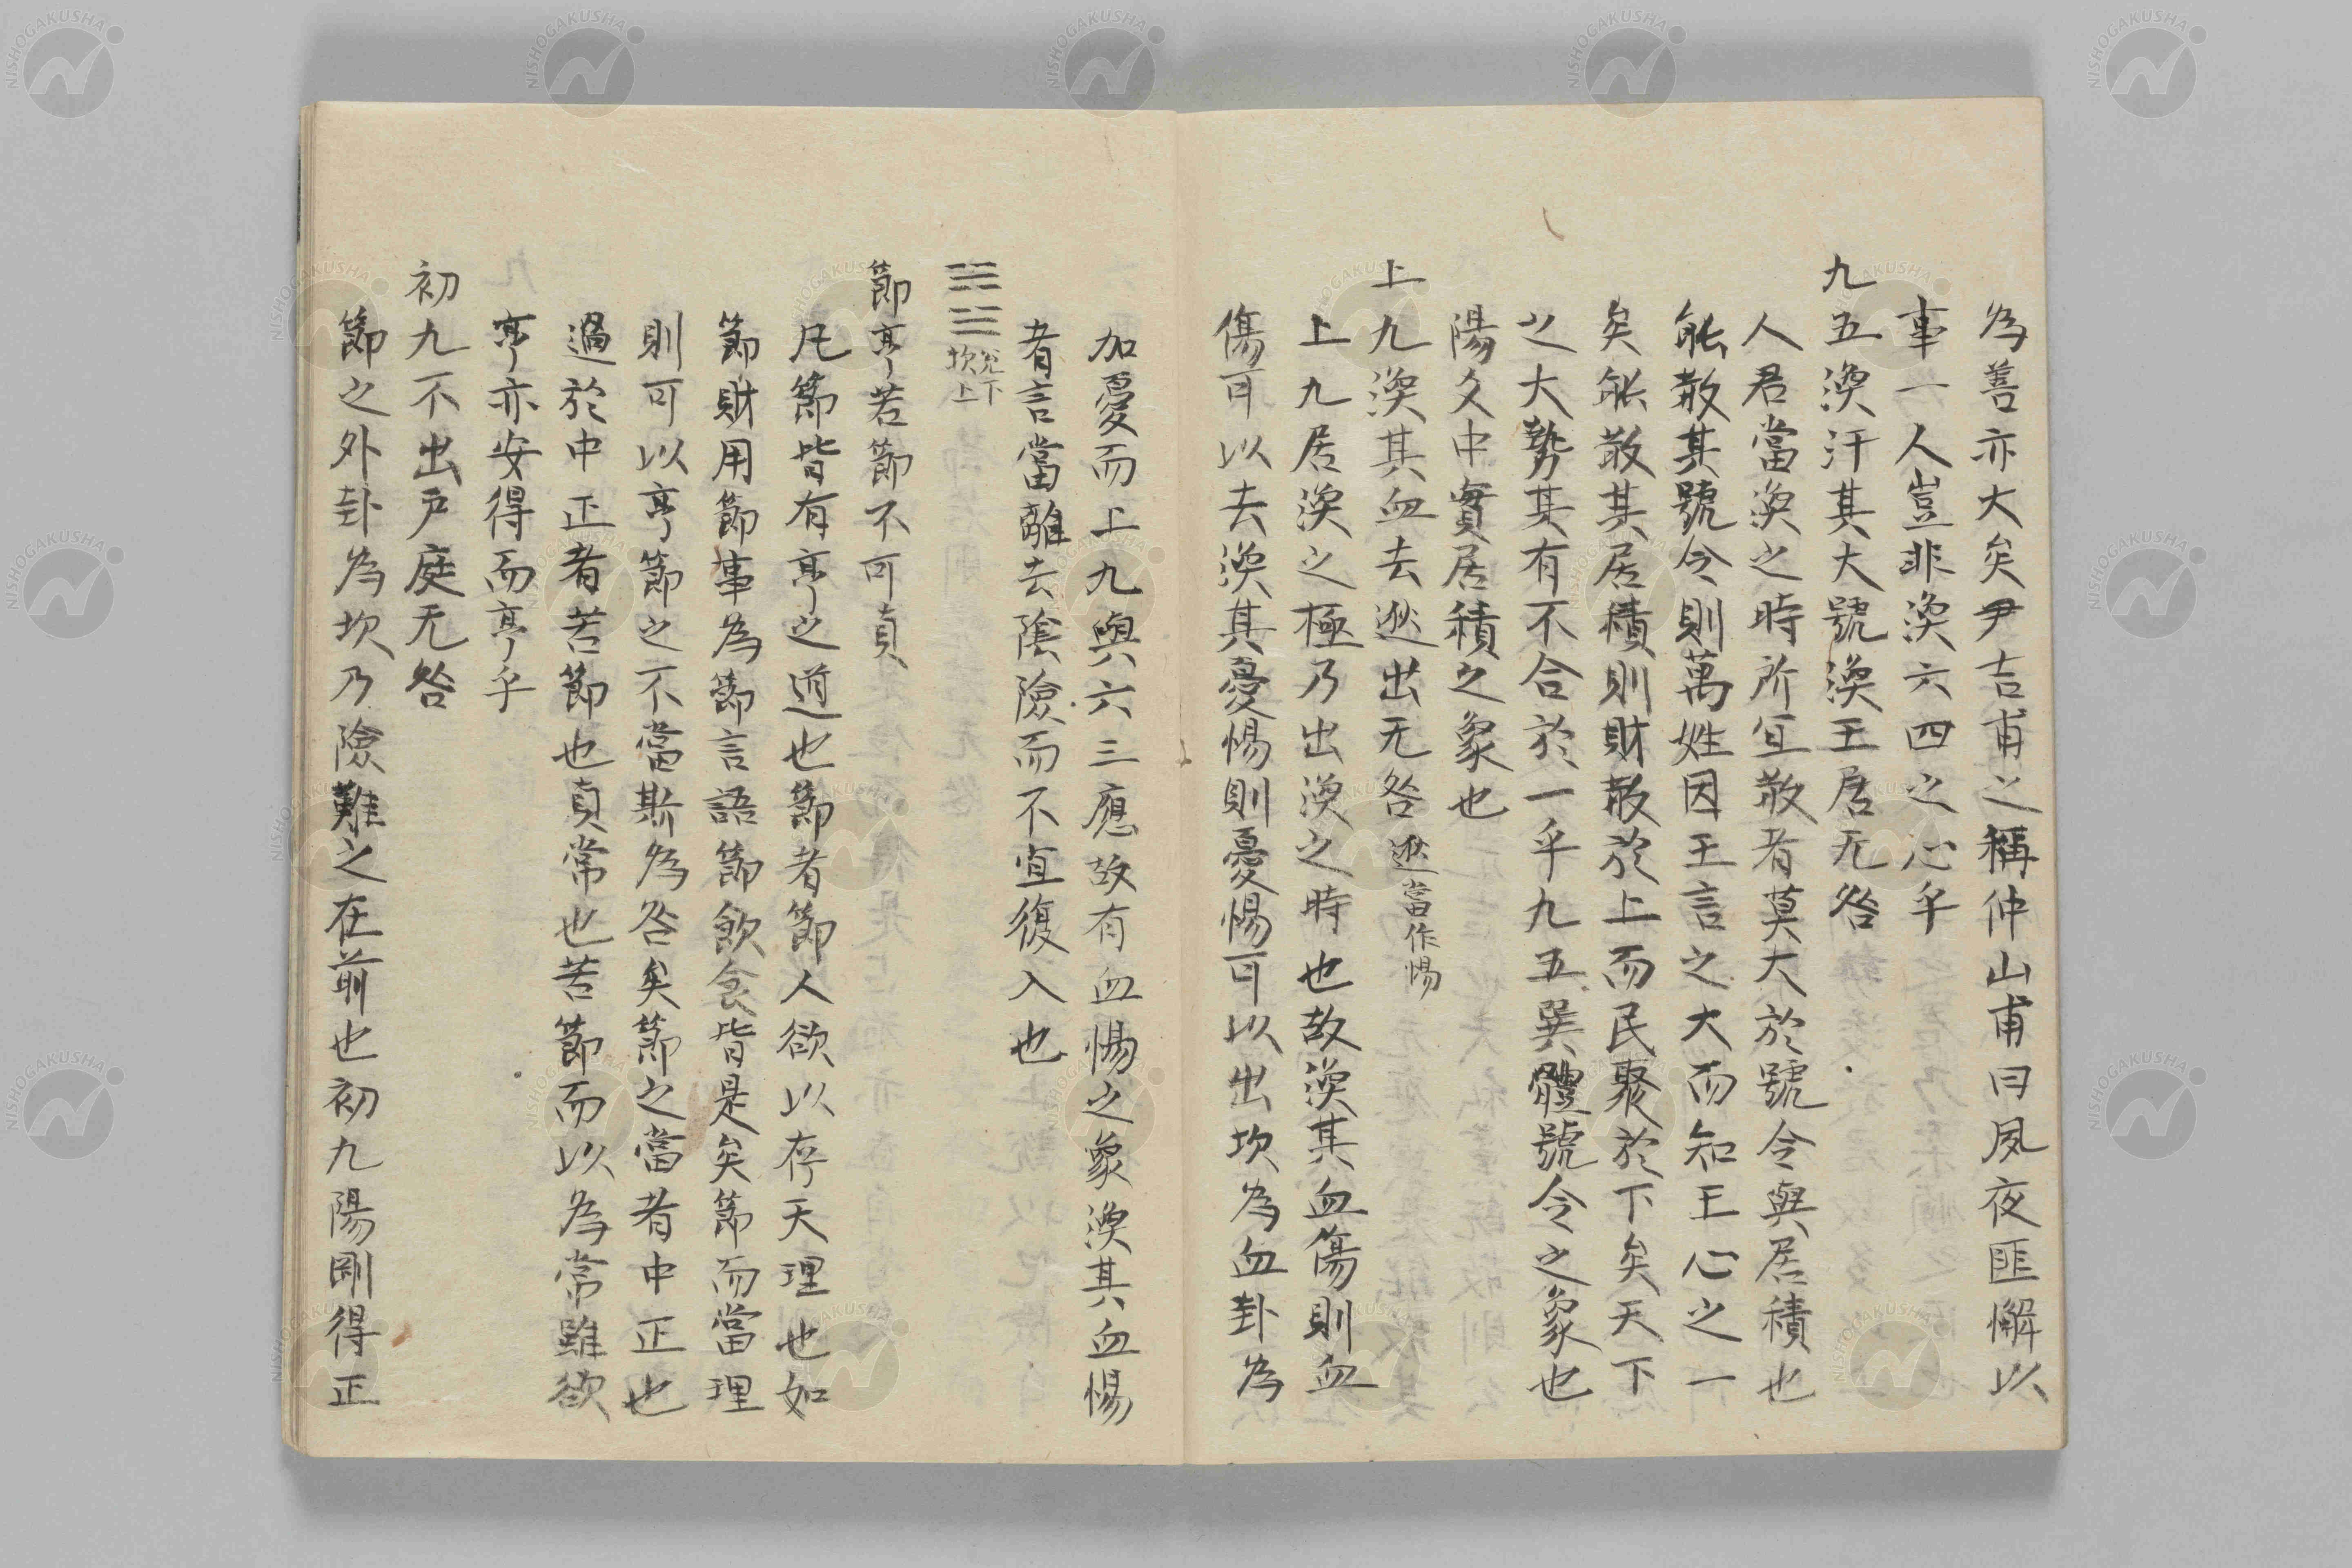 為善亦大矣尹吉甫之稱仲山甫曰夙夜匪懈以
事一人豈非渙六四之心乎
九五渙汗其大號渙王居无咎
人君當渙之時所宜散者莫大於號令與居積也
能散其號令則萬姓因王言之大而知王心之一
矣能散其居積則財散於上而民聚於下矣天下
之大勢其有不合於一乎九五巽體號令之象也
陽爻中實居積之象也
上九渙其血去逖出无咎逖當作惕
上九居渙之極乃出渙之時也故渙其血傷則血
傷可以去渙其憂惕則憂惕可以出坎為血卦為
加憂而上九與六三應故有血惕之象渙其血惕
者言當離去陰險而不宜復入也
兌下坎上
節亨苦節不可貞
凡節皆有亨之道也節者節人欲以存天理也如
節財用節事為節言語節飲食皆是矣節而當理
則可以亨節之不當斯為咎矣節之當者中正也
過於中正者苦節也貞常也苦節而以為常雖欲
亨亦安得而亨乎
初九不出戶庭无咎
節之外卦為坎乃險難之在前也初九陽剛得正
NISHOGAKUSHA